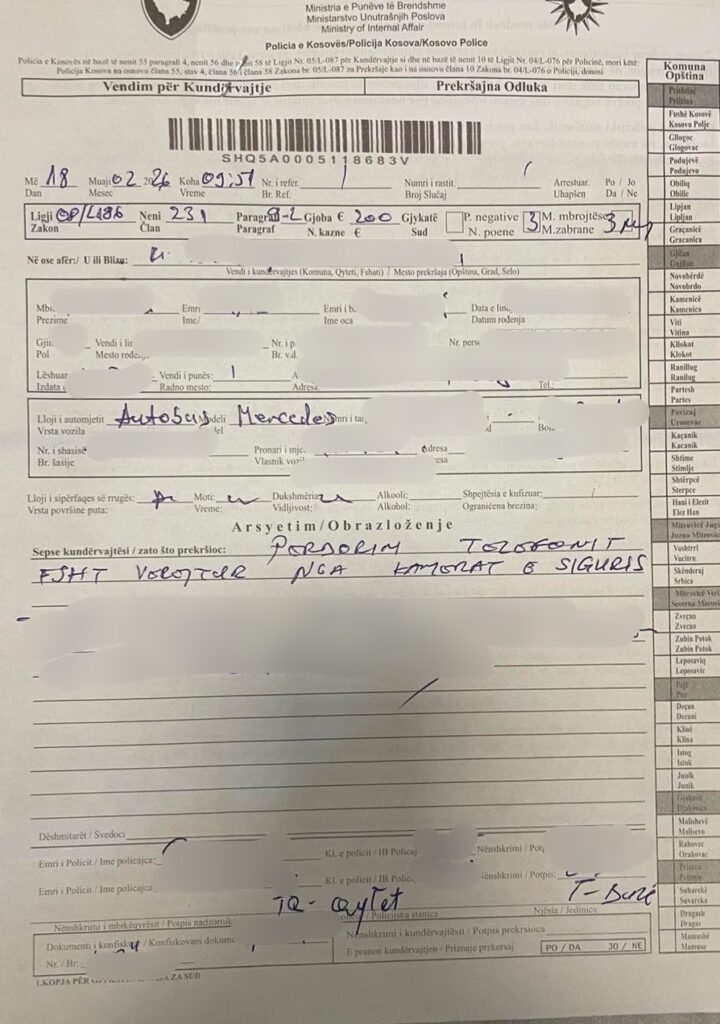 Ministria e Punëve të Brendshme
Ministarstvo Unutrašnjih Poslova
Ministry of Internal Affair
Policia e Kosovës/Policija Kosova/Kosovo Police
Policia e Kosovës në bazë të nenit 55 paragrafi 4, nenit 56 dhe 58 të Ligjit Nr. 05/L-087 për Kundërvajtje si dhe në bazë të nenit 10 të Ligjit Nr. 04/L-076 për Policinë, mori këtë:
Policija Kosova na osnovu člana 55, stav 4, člana 56 i člana 58 Zakona br. 05/L-087 za Prekršaje kao i na osnovu člana 10 Zakona br. 04/L-076 o Policiji, donosi
Vendim për Kundërvajtje Prekršajna Odluka
SHQ5A0005118683V
Më 18 Muaji 02 2026 Koha 09:51 Nr. i refer. Numri i rastit. Arrestuar. Po / Jo
Dan Mesec Vreme Br. Ref. Broj Slučaj Uhapšen Da / Ne
Ligji 08/L186 Neni 231 Paragraf Gjoba € 200 Gjykatë P. negative 3 M. mbrojtëse 3
Zakon Član Paragraf N. kazne € Sud N. poene M.zabrane
Në ose afër:/ U ili Blizu:
Vendi i kundërvajtjes (Komuna, Qyteti, Fshati) / Mesto prekršaja (Opština, Grad, Selo)
Mbi. Emri Emri i b. Data e lin.
Prezime Ime/ Ime oca Datum rođenja
Gjin. Vendi i li Nr. i p. Nr. pers
Pol Mesto rođen. Br. v.d.
Lëshuar Vendi i punës: A
Izdata Radno mesto: Adresa. Tel.:
Lloji i automjetit Autobus Modeli Mercedes
Vrsta vozila Boj
Nr. i shasisë Pronari i mje. Adresa
Br. šasije Vlasnik vozil
Lloji i sipërfaqes së rrugës: Moti: Dukshmëria Alkooli: Shpejtësia e kufizuar:
Vrsta površine puta: Vreme: Vidljivost: Alkohol: Ograničena brezina:
Arsyetim/Obrazloženje
Sepse kundërvajtësi / zato što prekršioc: PERDORIM TELEFONIT
ESHT VEREJTUR NGA KAMERAT E SIGURIS
Dëshmitarët / Svedoci
Emri i Policit / Ime policajca: Kl. e policit / IB Policaj Nënshkrimi / Potp
Emri i Policit / Ime policajca Kl. e policit / IB Polic. Nënshkrimi / Potpis:
TQ- Qytet
Nënshkrimi i mbikëqyrësit / Potpis nadzornik: / Policijska stanica Njësia / Jedinica
Dokumenti i konfisku / Konfiskovani dokume Nënshkrimi i kundërvajtësit / Potpis prekrsioca
Nr. / Br.: E pranon kundërvajtjen / Priznaje prekersaj PO / DA JO / NE
1.KOPJA PËR ZA SUD
Komuna
Opština
Prishtinë
Priština
Fushë Kosovë
Kosovo Polje
Gllogoc
Glogovac
Podujevë
Podujevo
Obiliq
Obilic
Lipjan
Lipljan
Graçanicë
Gracanica
Gjilan
Gnjilan
Novobërdë
Novobrdo
Kamenicë
Kamenica
Viti
Vitina
Kllokot
Klokot
Ranillug
Ranilug
Partesh
Partes
Ferizaj
Urosevac
Kaçanik
Kacanik
Shtime
Stimlje
Shtërpcë
Sterpce
Hani i Elezit
Elez Han
Mitrovicë Jug
Juzna Mitrovic
Vushtrri
Vucitrn
Skënderaj
Srbica
Mitrovicë Veri
Severna Mitrovic
Zveçan
Zvecan
Zubin Potok
Zubin Potok
Leposaviq
Leposavic
Pejë
Pec
Deçan
Decani
Klinë
Klina
Istog
Istok
Junik
Junik
Gjakovë
Djakovica
Malishevë
Malisevo
Rahovec
Orahovac
Prizren
Prizren
Suharekë
Suvareka
Dragash
Dragas
Mamushë
Mamusa